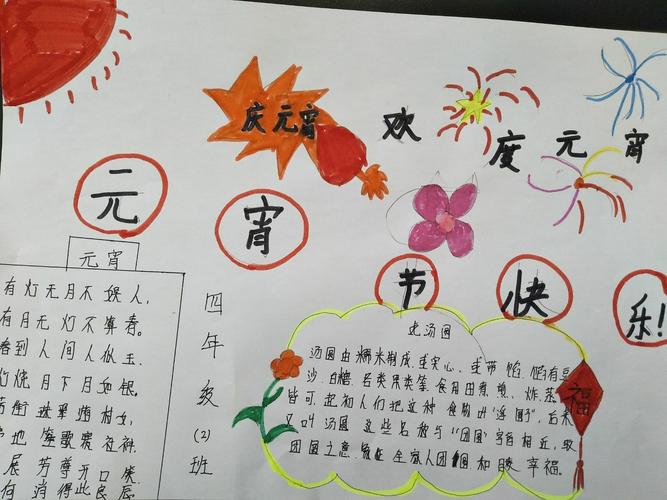 庆元宵
欢度元宵
元宵节快乐!
元宵
有灯无月不娱人,
有月无灯不算春。
到人间人似玉
灯烧月下月如银
街珠翠游村女,
地笙歌赛社神
展芳尊开口笑
何消得此良辰
四年级(2)班
吃汤圆
汤圆由糯米制成,或实心,或带馅,馅有豆
沙、白糖、各类果类等,食用煮、炸、蒸
皆可,起初人们把这种食物叫“浮圆子”,后来
又叫汤圆这些名称与“团圆”字音相近,取
团圆之意,象征全家人团圆和睦幸福。
福